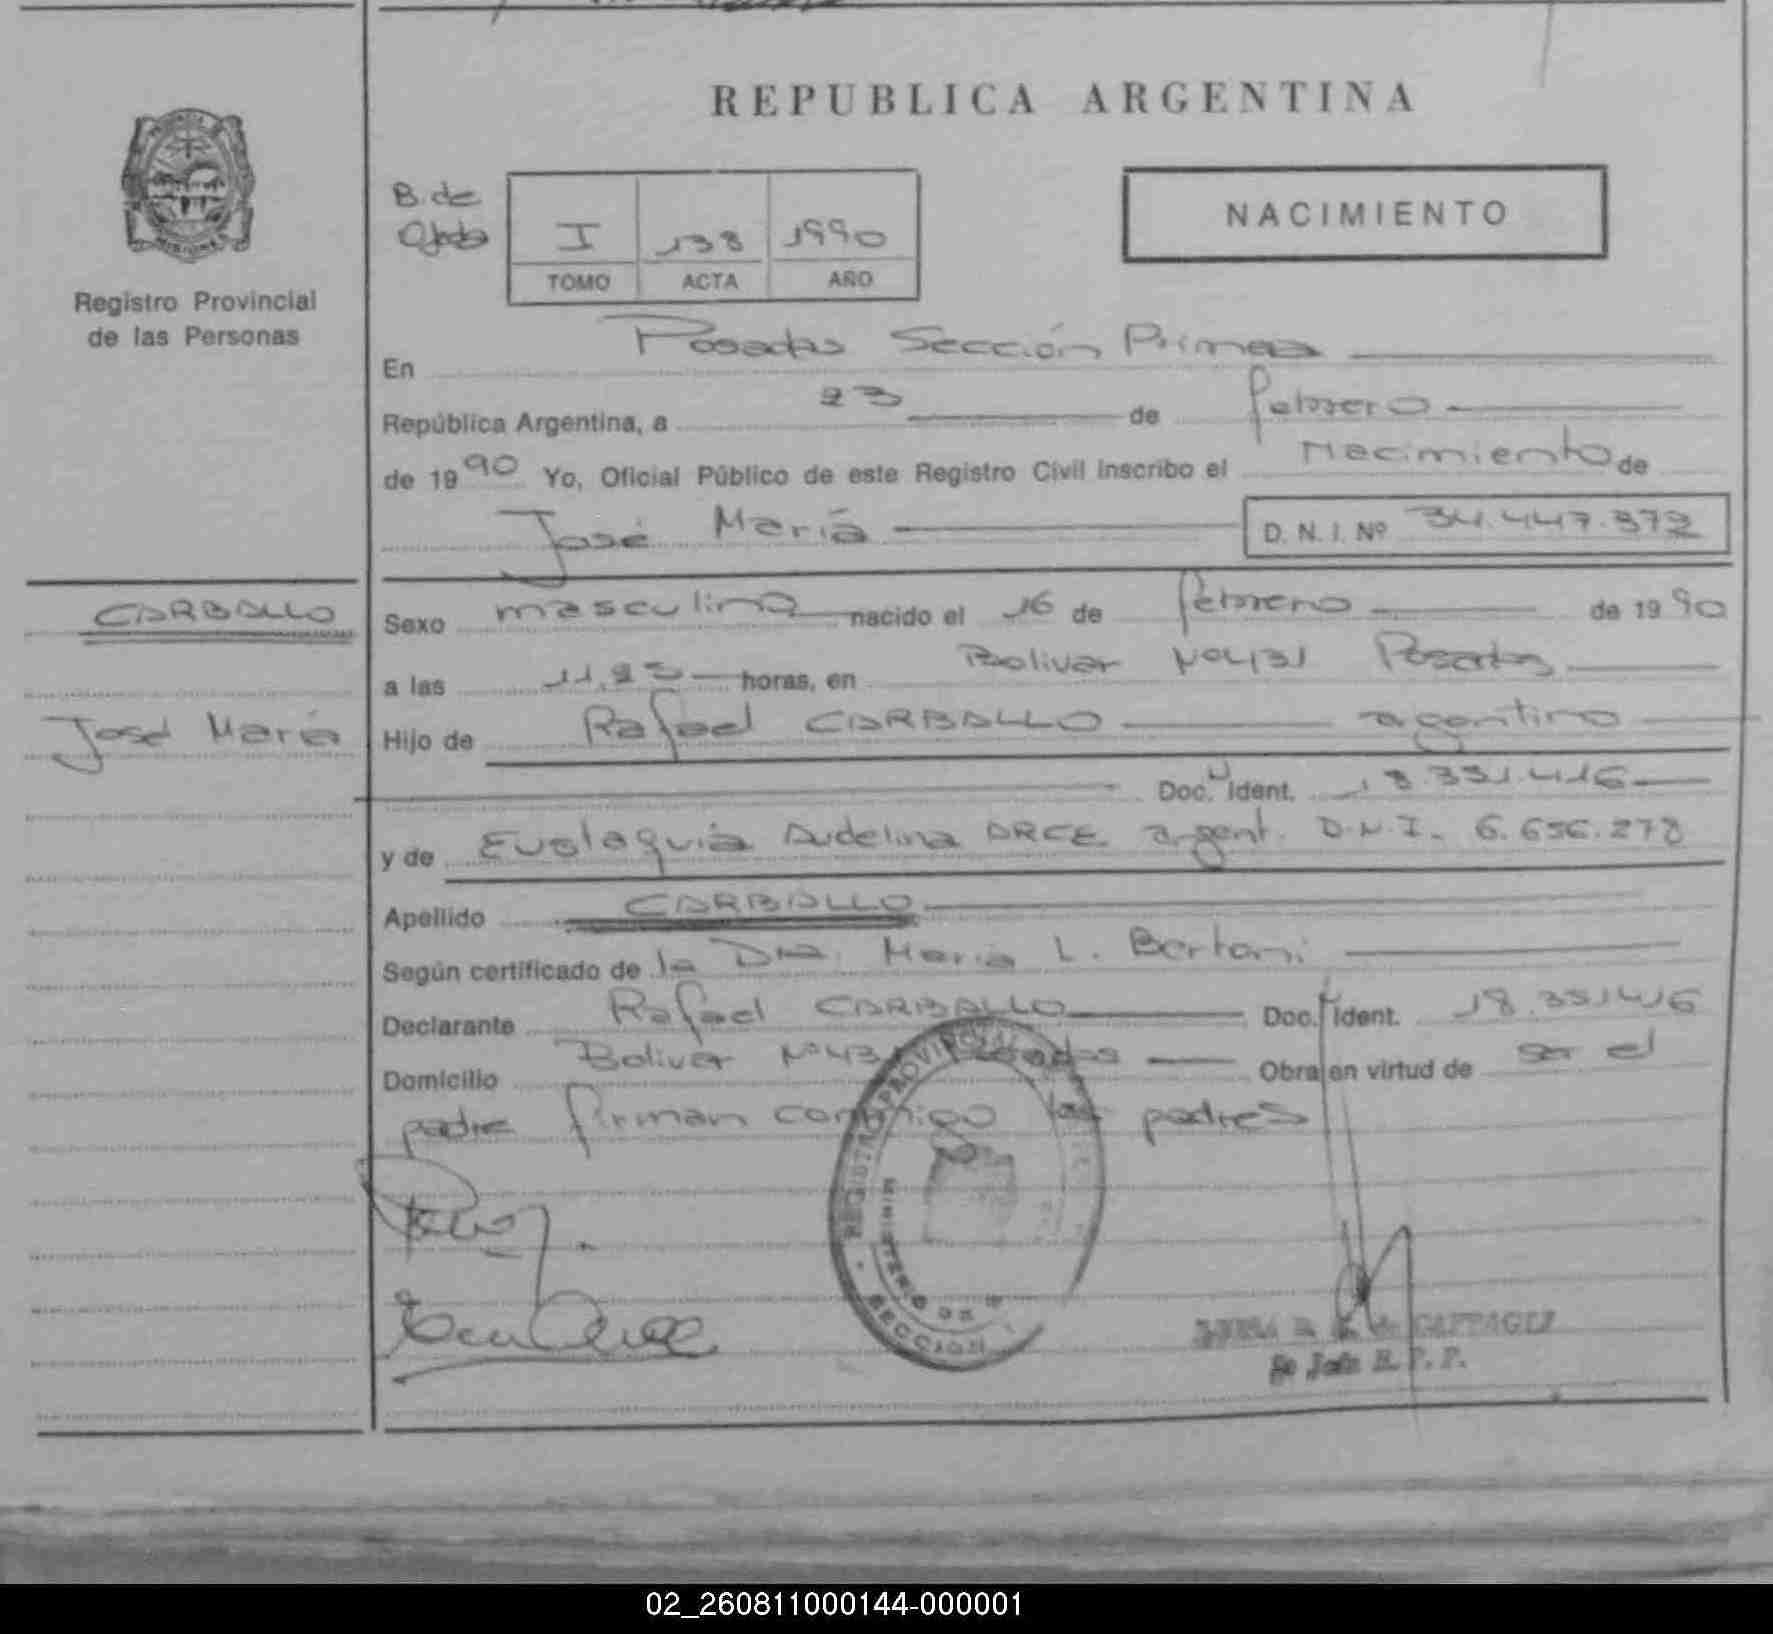 REPUBLICA ARGENTINA
NACIMIENTO
B. de
I 138 1990
TOMO ACTA AÑO
Registro Provincial
de las Personas
En Posadas Sección Primera
República Argentina, a 23 de febrero
de 1990 Yo, Oficial Público de este Registro Civil inscribo el Nacimiento de
José María D. N. I. Nº 34.447.372
CARBALLO
José María
Sexo masculino nacido el 16 de febrero de 1990
a las 11,25 horas, en Bolivar Nº431 Posadas
Hijo de Rafael CARBALLO argentino
Doc. Ident. 18.351.416
y de Eustaquia Audelina ARCE argent. D.N.I. 6.656.278
Apellido CARBALLO
Según certificado de la Dra. Maria L. Bertoni
Declarante Rafael CARBALLO Doc. Ident. 18.351416
Domicilio Bolivar Nº431 Posadas Obra en virtud de ser el
padre firman conmigo los padres
REGISTRO PROVINCIAL
MINISTERIO DE
SECCION
R. P. P.
02_260811000144-000001